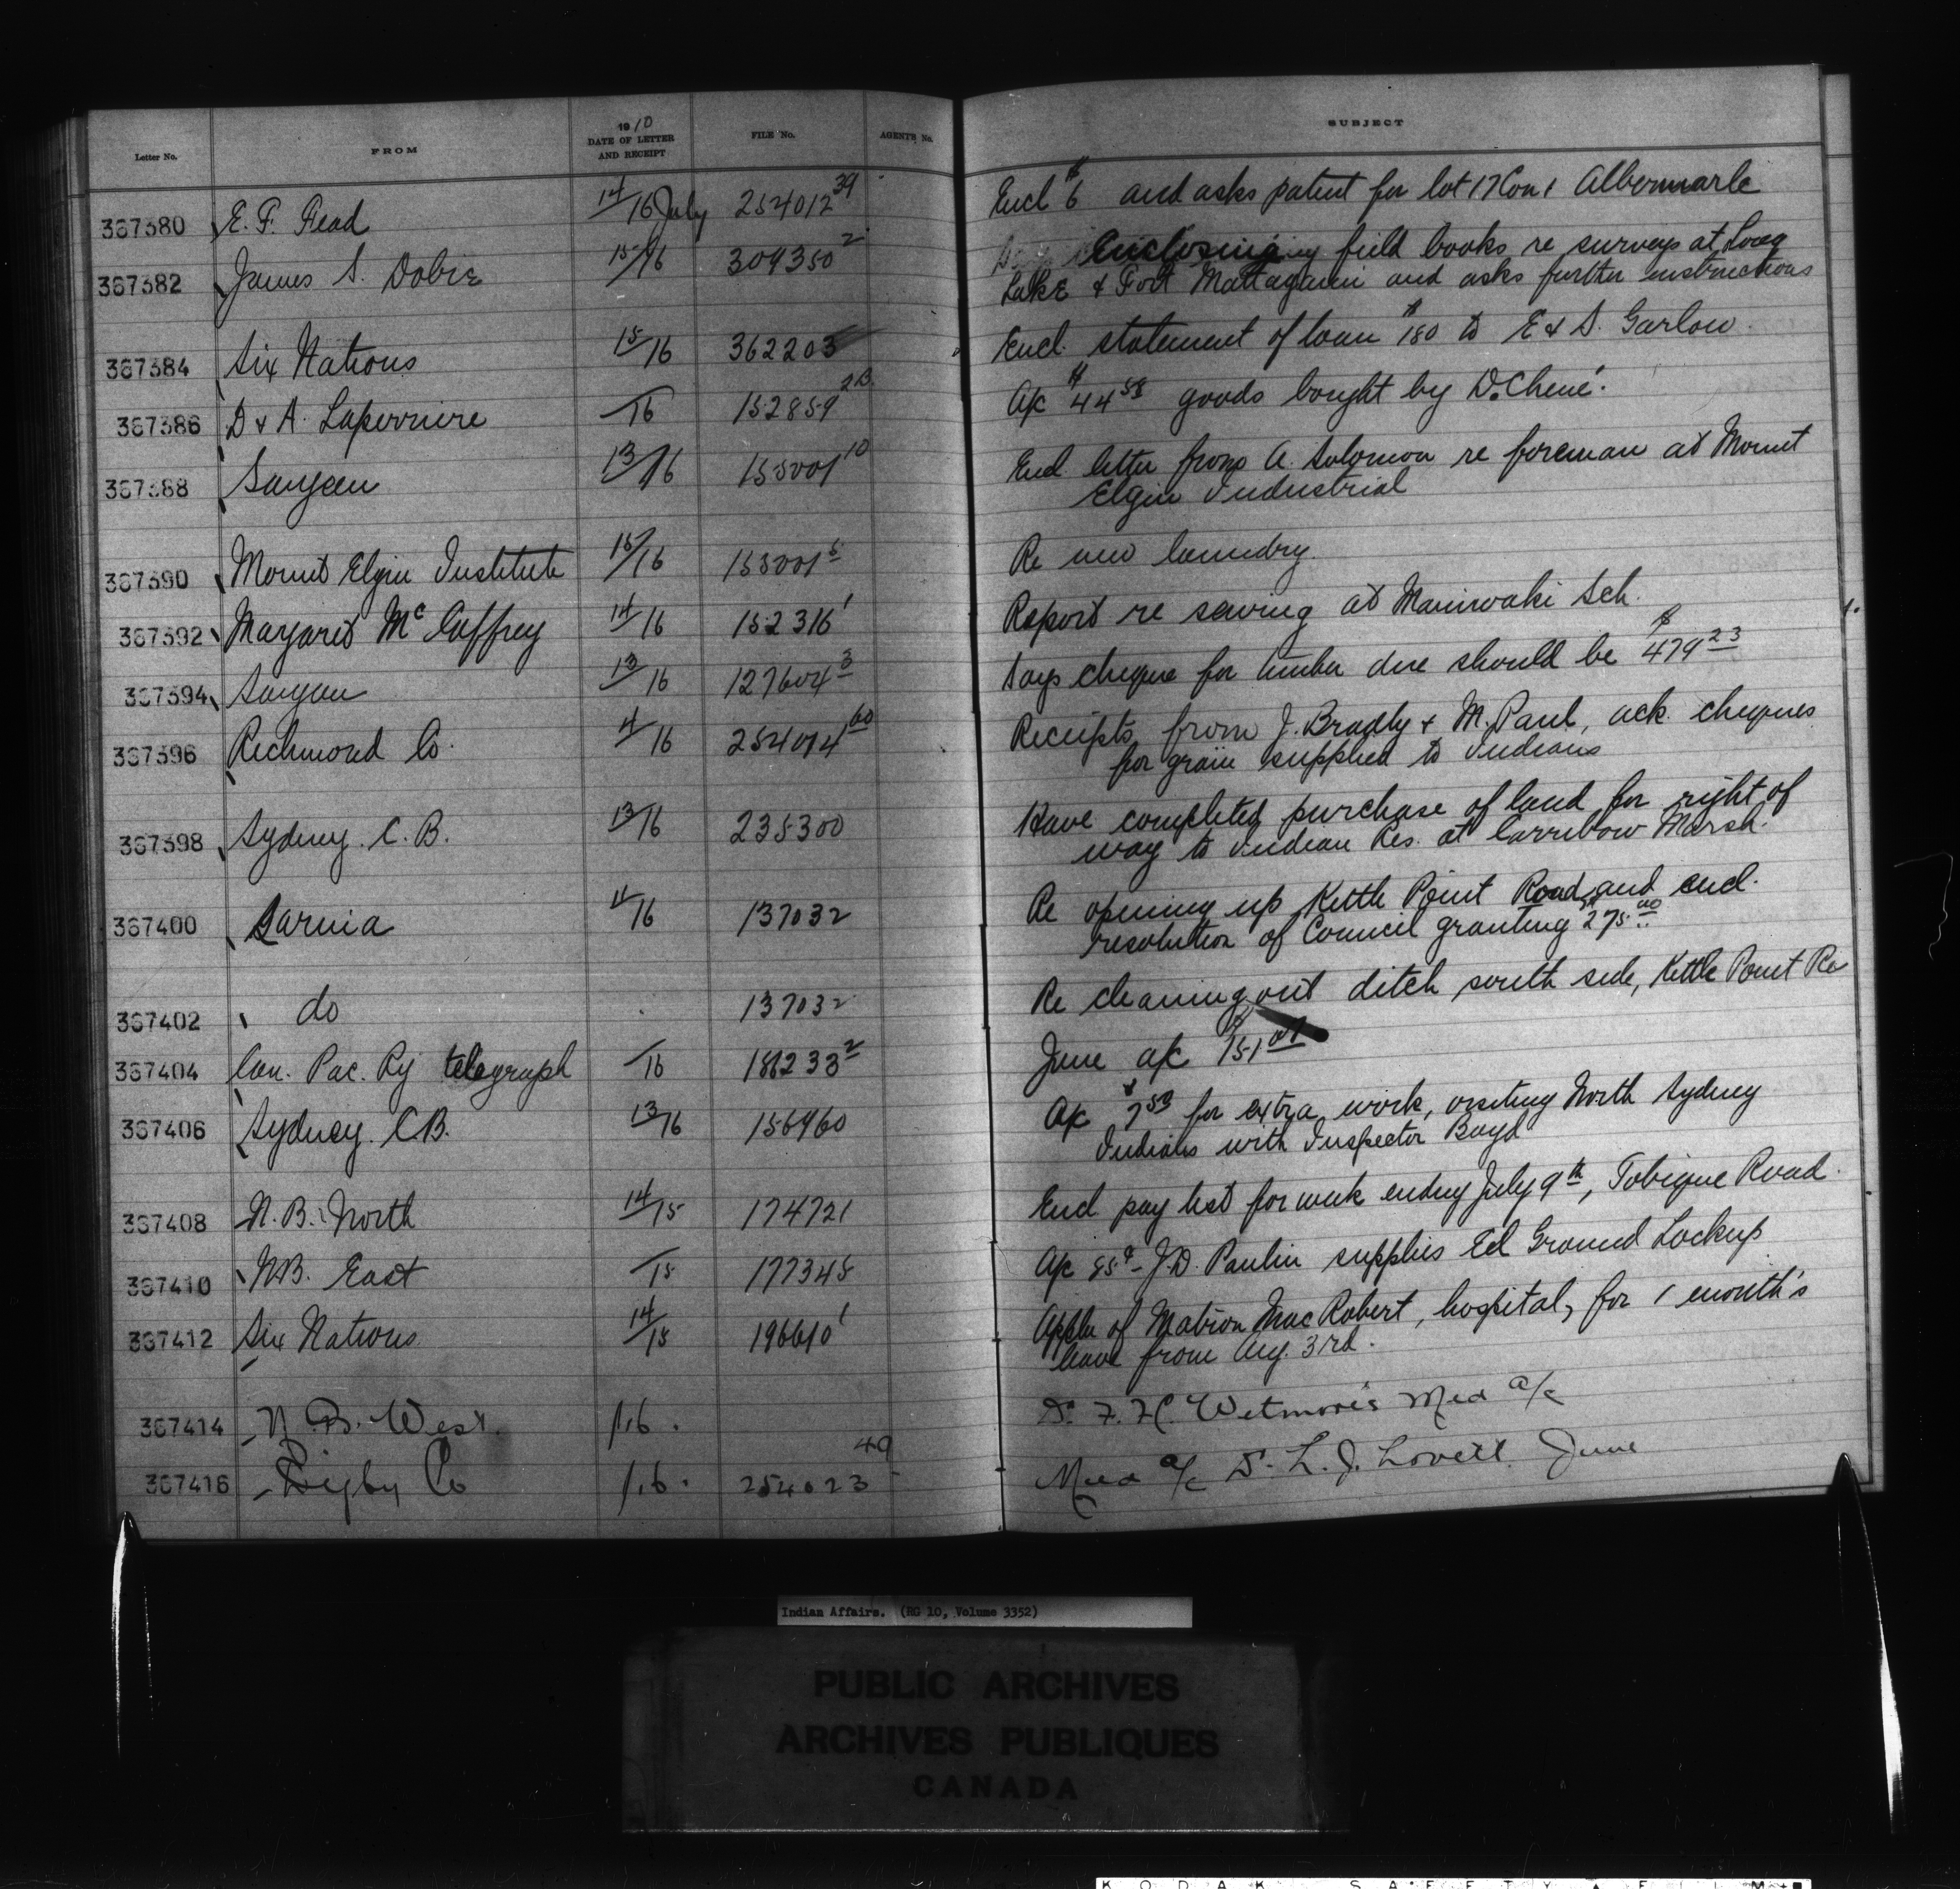 Letter No. FROM 1910 DATE OF LETTER AND RECEIPT FILE No. AGENTS No. SUBJECT
367380 E. F. Fead 14/16 July 254012 39 Encl $6 and asks patent for lot 17 Con 1 Albermarle
367382 James S. Dobie 15/16 309350 2 Enclosing field books re surveys at Long
Lake & Fort Mattagami and asks further instructions
367384 Six Nations 15/16 362203 Encl. statement of loan $180 to E & S. Garlow.
367386 D & A. Laperriere /16 152859 2B A/c $44 58 goods bought by D. Chené.
367388 Saugeen 13/16 155001 10 Encl letter from A. Solomon re foreman at Mount
Elgin Industrial
367390 Mount Elgin Institute 15/16 155001 5 Re new laundry.
367392 Margaret McCaffrey 14/16 152316 1 Report re sewing at Maniwaki Sch.
367394 Saugeen 13/16 127604 3 Says cheque for timber due should be $479 23
367396 Richmond Co. 11/16 254014 60 Receipts from J. Bradly & M. Paul, ack. cheques
for grain supplied to Indians
367398 Sydney. C. B. 13/16 235300 Have completed purchase of land for right of
way to Indian Res. at Carribow Marsh.
367400 Sarnia 11/16 137032 Re opening up Kettle Point Road, and encl.
resolution of Council granting $275 00
367402 do 137032 Re cleaning out ditch south side, Kettle Point Re
367404 Can. Pac. Ry telegraph /16 186233 2 June a/c $151 07
367406 Sydney. C.B. 13/16 156960 A/c $7 50 for extra work, visiting North Sydney
Indians with Inspector Boyd
367408 N. B. North 14/15 174721 Encl pay list for week ending July 9th, Tobique Road.
367410 N.B. East /15 177345 A/c 85¢ - J.D. Paulin supplies Eel Ground Lockup
367412 Six Nations 14/15 196610 1 Appln of Matron MacRobert, hospital, for 1 month's
leave from Aug. 3rd.
367414 N. B. West. /16. Dr. F. H. Wetmore's Med a/c
367416 Digby Co /16. 254023 49 Med a/c Dr. L. J. Lovett. June
Indian Affairs. (RG 10, Volume 3352)
PUBLIC ARCHIVES
ARCHIVES PUBLIQUES
CANADA
KODAK SAFETY FILM